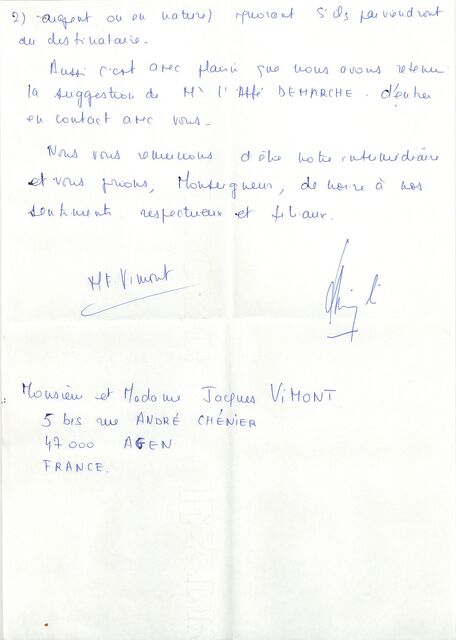 2) argent ou en nature) ignorant s'ils parviendront
au destinataire.
Aussi c'est avec plaisir que nous avons retenu
la suggestion de Mr l'Abbé DEMARCHE d'entrer
en contact avec vous.
Nous vous remercions d'être notre intermédiaire
et vous prions, Monseigneur, de croire à nos
sentiments respectueux et filiaux.
MF. Vimont
Monsieur et Madame Jacques VIMONT
5 bis rue ANDRÉ CHÉNIER
47000 AGEN
FRANCE.